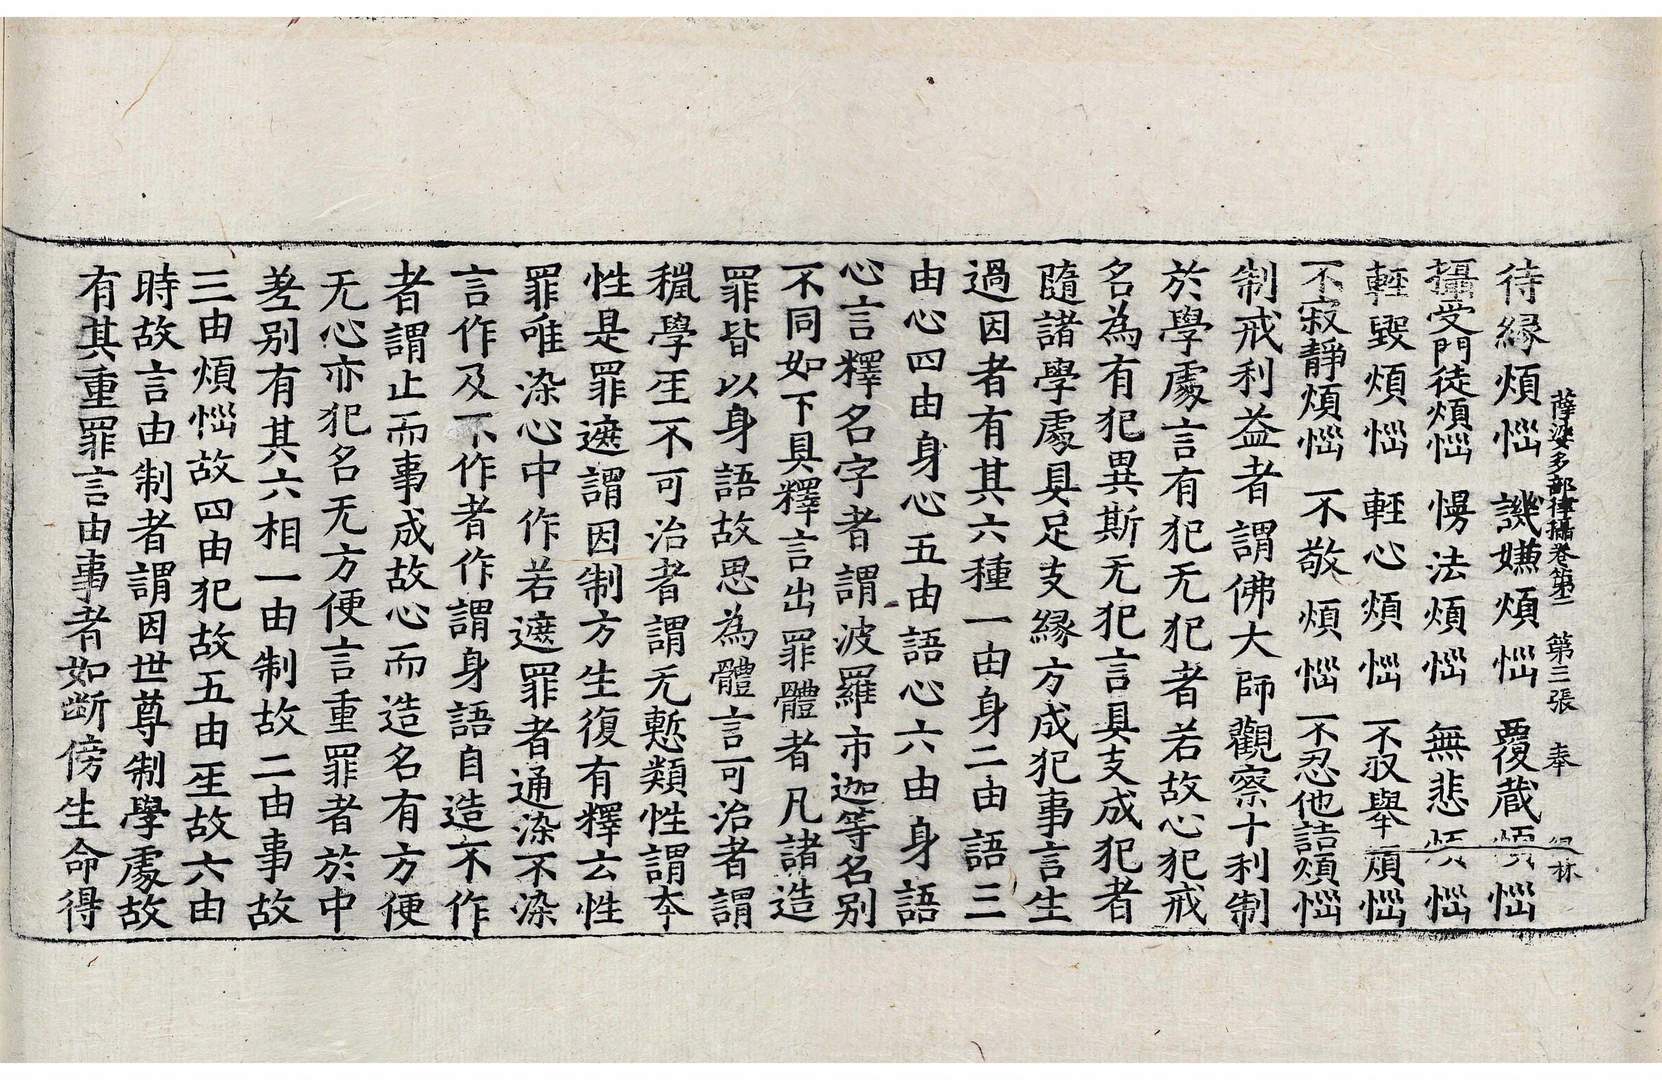 薩婆多部律攝卷第一　第三張　奉
待縁煩惱　譏嫌煩惱　覆蔵煩惱
攝受門徒煩惱　慢法煩惱　無悲煩惱
輕毀煩惱　輕心煩惱　不収舉煩惱
不寂靜煩惱　不敬煩惱　不忍他詰煩惱
制戒利益者謂佛大師觀察十利制
於學處言有犯无犯者若故心犯戒
名為有犯異斯无犯言具支成犯者
隨諸學處具足支縁方成犯事言生
過因者有其六種一由身二由語三
由心四由身心五由語心六由身語
心言釋名字者謂波羅市迦等名別
不同如下具釋言出罪體者凡諸造
罪皆以身語故思為體言可治者謂
穢學至不可治者謂无慙類性謂本
性是罪遮謂因制方生復有釋云性
罪唯染心中作若遮罪者通染不染
言作及不作者作謂身語自造不作
者謂止而事成故心而造名有方便
无心亦犯名无方便言重罪者於中
差別有其六相一由制故二由事故
三由煩惱故四由犯故五由至故六由
時故言由制者謂因世尊制學處故
有其重罪言由事者如斷傍生命得